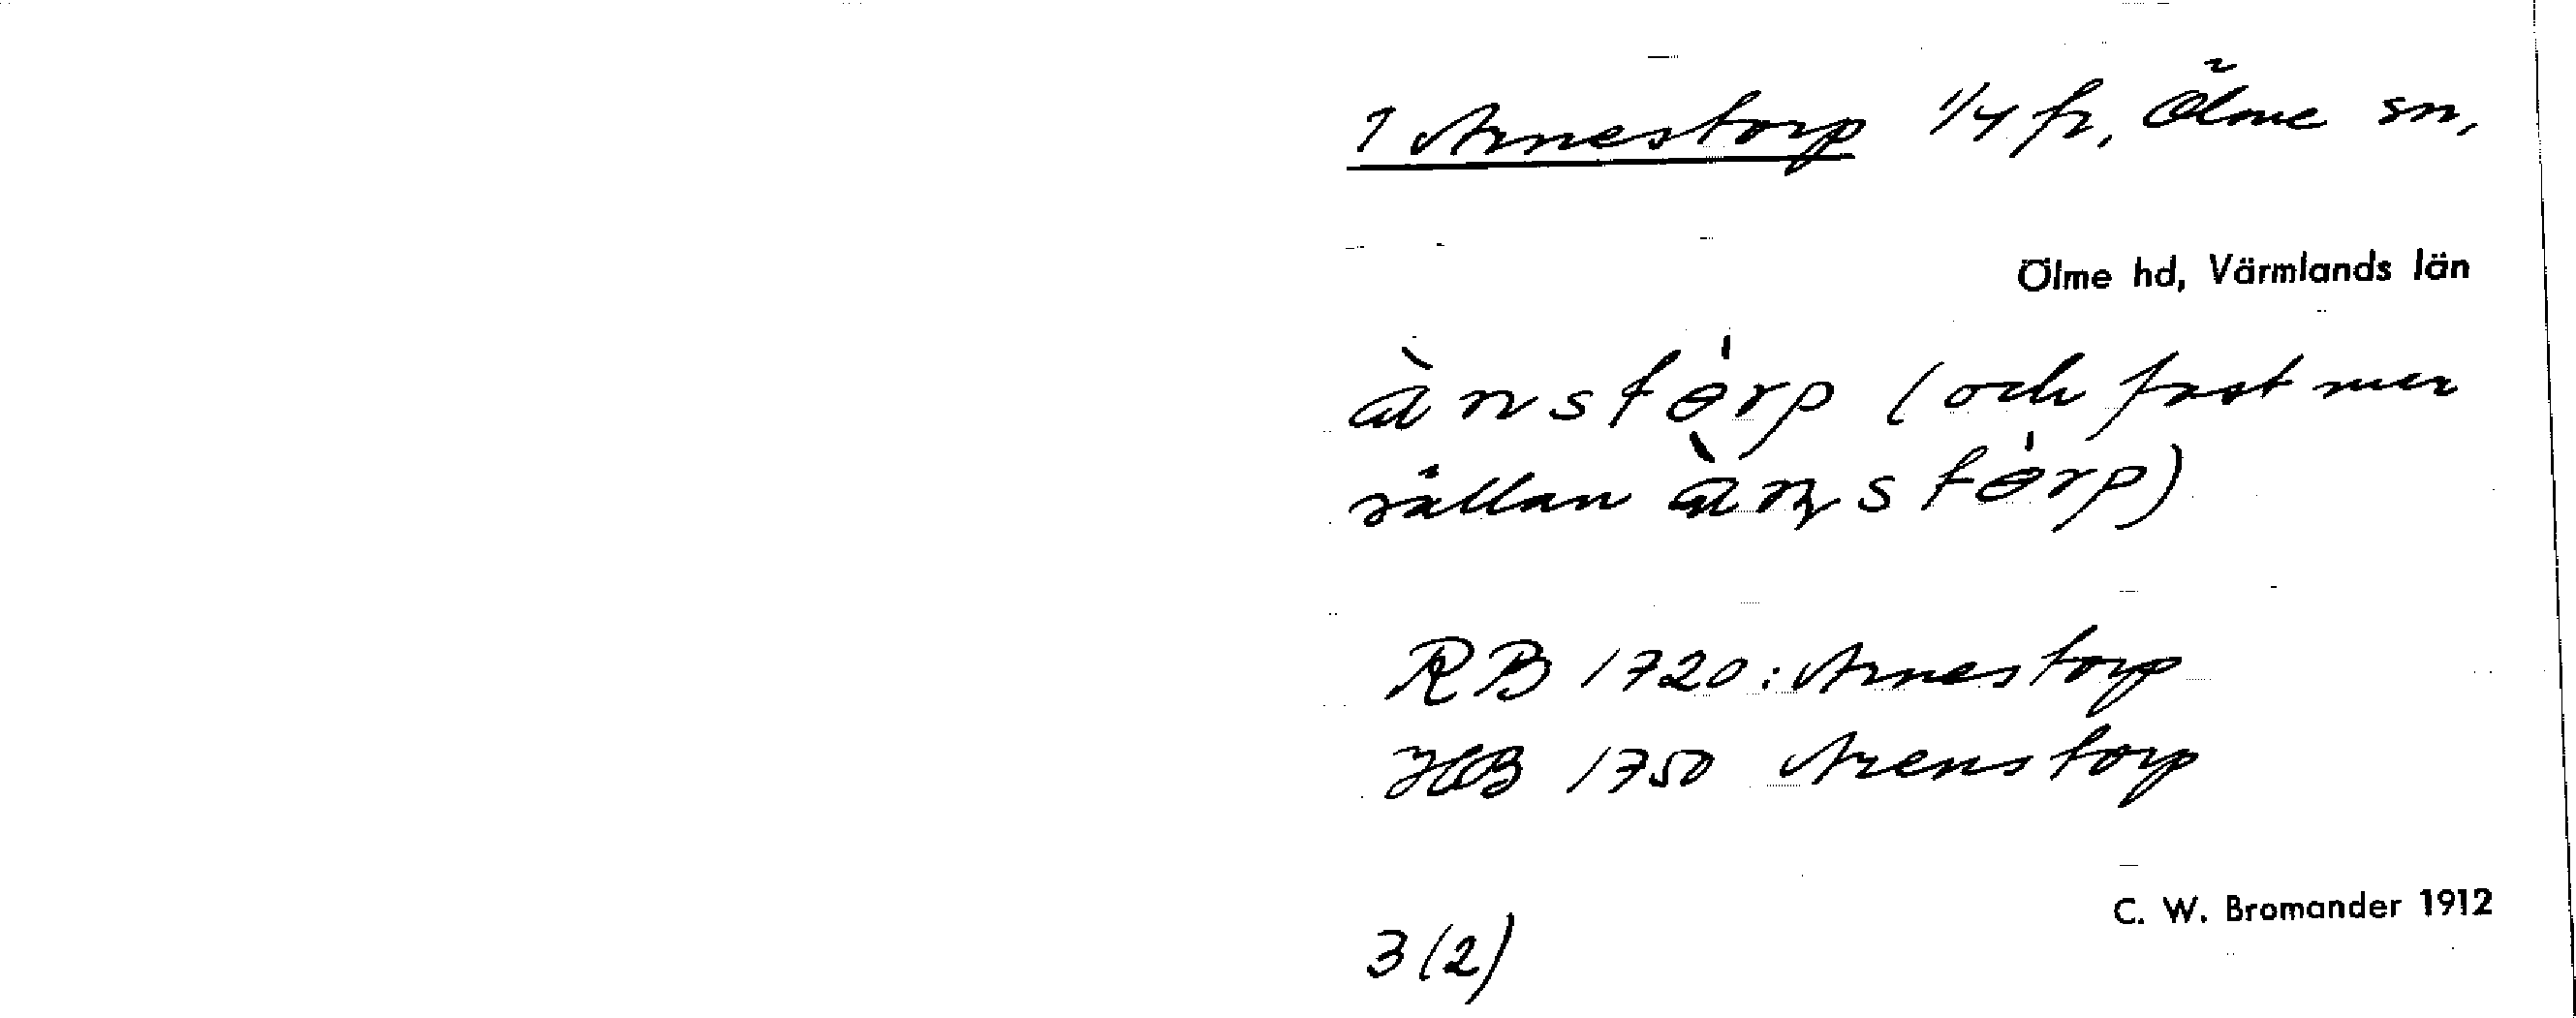 1 Arnestorp 1/4 fr, Ölme sn,
Ölme hd, Värmlands län
à̲nstɵ́rp (och fast mer
sällan à̲n̥stɵ́rp)
RB 1720: Arnestorp
HB 1750 Arenstorp
C. W. Bromander 1912
3 (2)